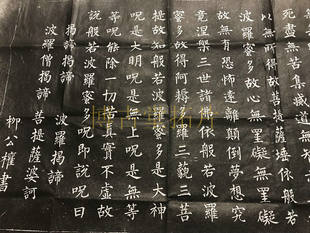 死盡無苦集滅道無
以無所得故菩提薩埵依般若
波羅蜜多故心無罣礙無罣礙
故無有恐怖遠離顛倒夢想究
竟涅槃三世諸佛依般若波羅
蜜多故得阿耨多羅三藐三菩
提故知般若波羅蜜多是大神
呪是大明呪是無上呪是無等
等呪能除一切苦真實不虛故
說般若波羅蜜多呪即說呪曰
揭諦揭諦 波羅揭諦
波羅僧揭諦 菩提薩婆訶
柳公權書